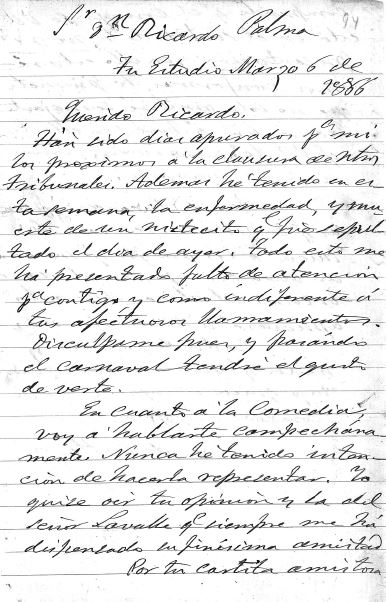 Sr Dn Ricardo Palma
94
Tu Estudio Marzo 6 de
1886
Querido Ricardo.
Han sido dias apurados pa mi
los proximos á la clausura de ntros
Tribunales. Ademas he tenido en es
ta semana, la enfermedad, y mu
erte de un nietecito q' fué sepul
tado el dia de ayer. Todo esto me
ha presentado falto de atencion
pa contigo y como indiferente á
tus afectuosos llamamientos.
Disculpame pues, y pasando
el carnaval tendré el gusto
de verte.
En cuanto á la Comedia,
voy á hablarte campechana
mente. Nunca he tenido inten-
cion de hacerla representar. Yo
quize oir tu opinión y la del
señor Lavalle q' siempre me ha
dispensado su finísima amistad
Por tu cartita amistosa